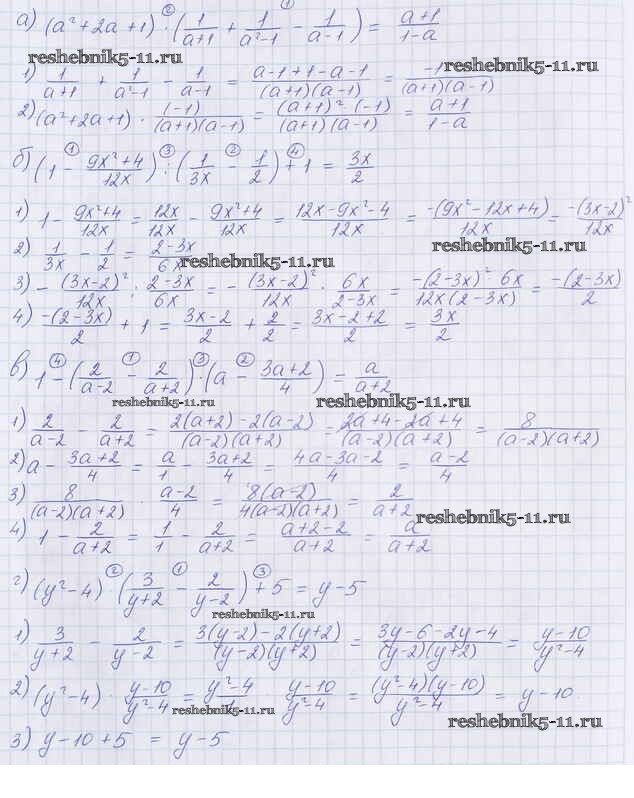 а) (a²+2a+1)·(1/(a+1) + 1/(a²-1) - 1/(a-1)) = (a+1)/(1-a)
reshebnik5-11.ru
reshebnik5-11.ru
1) 1/(a+1) + 1/(a²-1) - 1/(a-1) = (a-1+1-a-1)/((a+1)(a-1)) = -1/((a+1)(a-1))
2) (a²+2a+1) · (-1)/((a+1)(a-1)) = ((a+1)²·(-1))/((a+1)(a-1)) = (a+1)/(1-a)
б) (1 - (9x²+4)/(12x)) : (1/(3x) - 1/2) + 1 = 3x/2
1) 1 - (9x²+4)/(12x) = 12x/(12x) - (9x²+4)/(12x) = (12x-9x²-4)/(12x) = -(9x²-12x+4)/(12x) = -(3x-2)²/(12x)
reshebnik5-11.ru
2) 1/(3x) - 1/2 = (2-3x)/(6x)
reshebnik5-11.ru
3) -(3x-2)²/(12x) : (2-3x)/(6x) = -(3x-2)²/(12x) · 6x/(2-3x) = (-(2-3x)²·6x)/(12x(2-3x)) = -(2-3x)/2
4) -(2-3x)/2 + 1 = (3x-2)/2 + 2/2 = (3x-2+2)/2 = 3x/2
в) 1 - (2/(a-2) - 2/(a+2))·(a - (3a+2)/4) = a/(a+2)
reshebnik5-11.ru
reshebnik5-11.ru
1) 2/(a-2) - 2/(a+2) = (2(a+2)-2(a-2))/((a-2)(a+2)) = (2a+4-2a+4)/((a-2)(a+2)) = 8/((a-2)(a+2))
2) a - (3a+2)/4 = a/1 - (3a+2)/4 = (4a-3a-2)/4 = (a-2)/4
3) 8/((a-2)(a+2)) · (a-2)/4 = (8(a-2))/(4(a-2)(a+2)) = 2/(a+2)
reshebnik5-11.ru
4) 1 - 2/(a+2) = 1/1 - 2/(a+2) = (a+2-2)/(a+2) = a/(a+2)
г) (y²-4)·(3/(y+2) - 2/(y-2)) + 5 = y-5
reshebnik5-11.ru
1) 3/(y+2) - 2/(y-2) = (3(y-2)-2(y+2))/((y-2)(y+2)) = (3y-6-2y-4)/((y-2)(y+2)) = (y-10)/(y²-4)
2) (y²-4) · (y-10)/(y²-4) = (y²-4)/1 · (y-10)/(y²-4) = ((y²-4)(y-10))/(y²-4) = y-10
reshebnik5-11.ru
reshebnik5-11.ru
3) y-10+5 = y-5